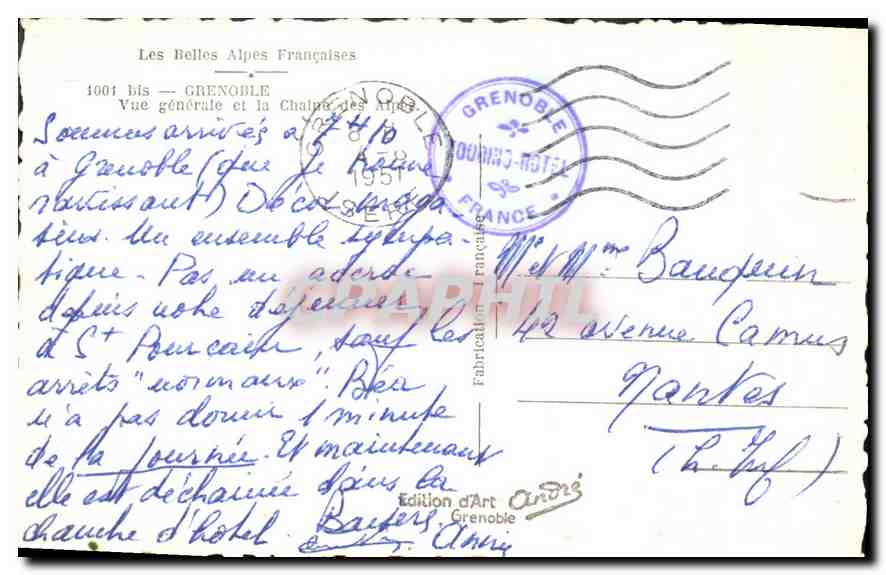 Les Belles Alpes Françaises
1001 bis — GRENOBLE
Vue générale et la Chaîne des Alpes.
GRENOBLE
1951
ISERE
GRENOBLE
TOURING-HOTEL
FRANCE
Sommes arrivés à 7 H 10
à Grenoble (que je trouve
ravissant) Décor maga-
sins. Un ensemble sympa-
tique. Pas un accroc
depuis notre déjeuner
à St Pourcain, sauf les
arrêts "normaux". Béa
n'a pas dormi 1 minute
de la journée. Et maintenant
elle est déchainée dans la
chambre d'hotel. Baisers.
Fabrication Française
Mr et Mme Bauquin
42 avenue Camus
Nantes
(L. Inf)
Edition d'Art André
Grenoble
CARAPHIL